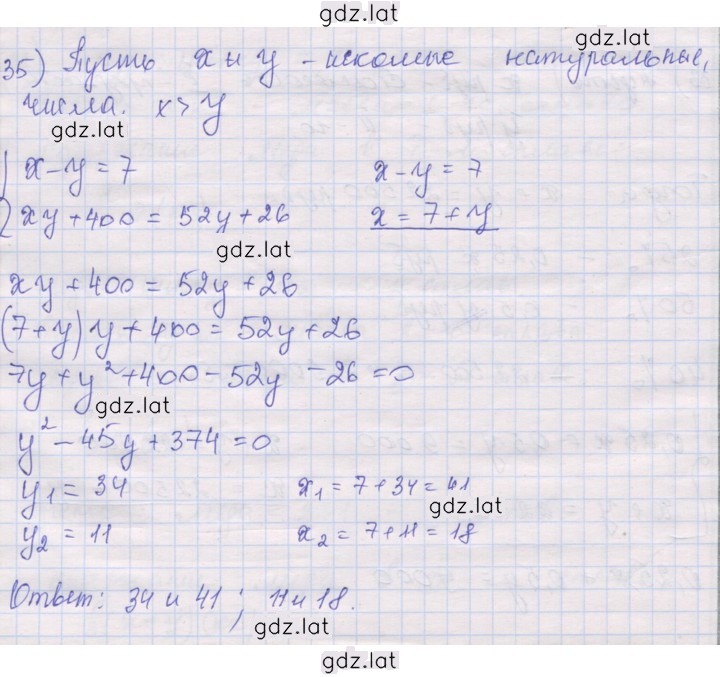 gdz.lat
gdz.lat
35) Пусть x и y - искомые натуральные,
числа. x > y
gdz.lat
1) x - y = 7     x - y = 7
2) xy + 400 = 52y + 26     x = 7 + y
gdz.lat
xy + 400 = 52y + 26
(7 + y) y + 400 = 52y + 26
7y + y² + 400 - 52y - 26 = 0
gdz.lat
y² - 45y + 374 = 0
y₁ = 34     x₁ = 7 + 34 = 41
gdz.lat
y₂ = 11     x₂ = 7 + 11 = 18
Ответ: 34 и 41 ; 11 и 18.
gdz.lat
gdz.lat